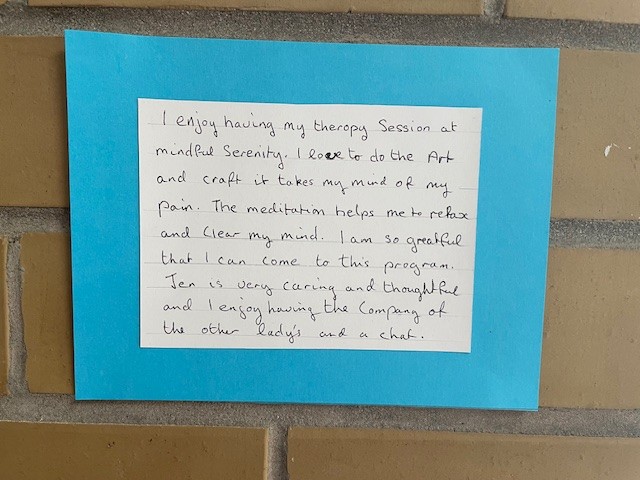 I enjoy having my theropy Session at
mindful Serenity. I love to do the Art
and craft it takes my mind of my
pain. The meditation helps me to relax
and Clear my mind. I am so greatful
that I can come to this program.
Jen is very caring and thoughtful
and I enjoy having the Company of
the other lady's and a chat.